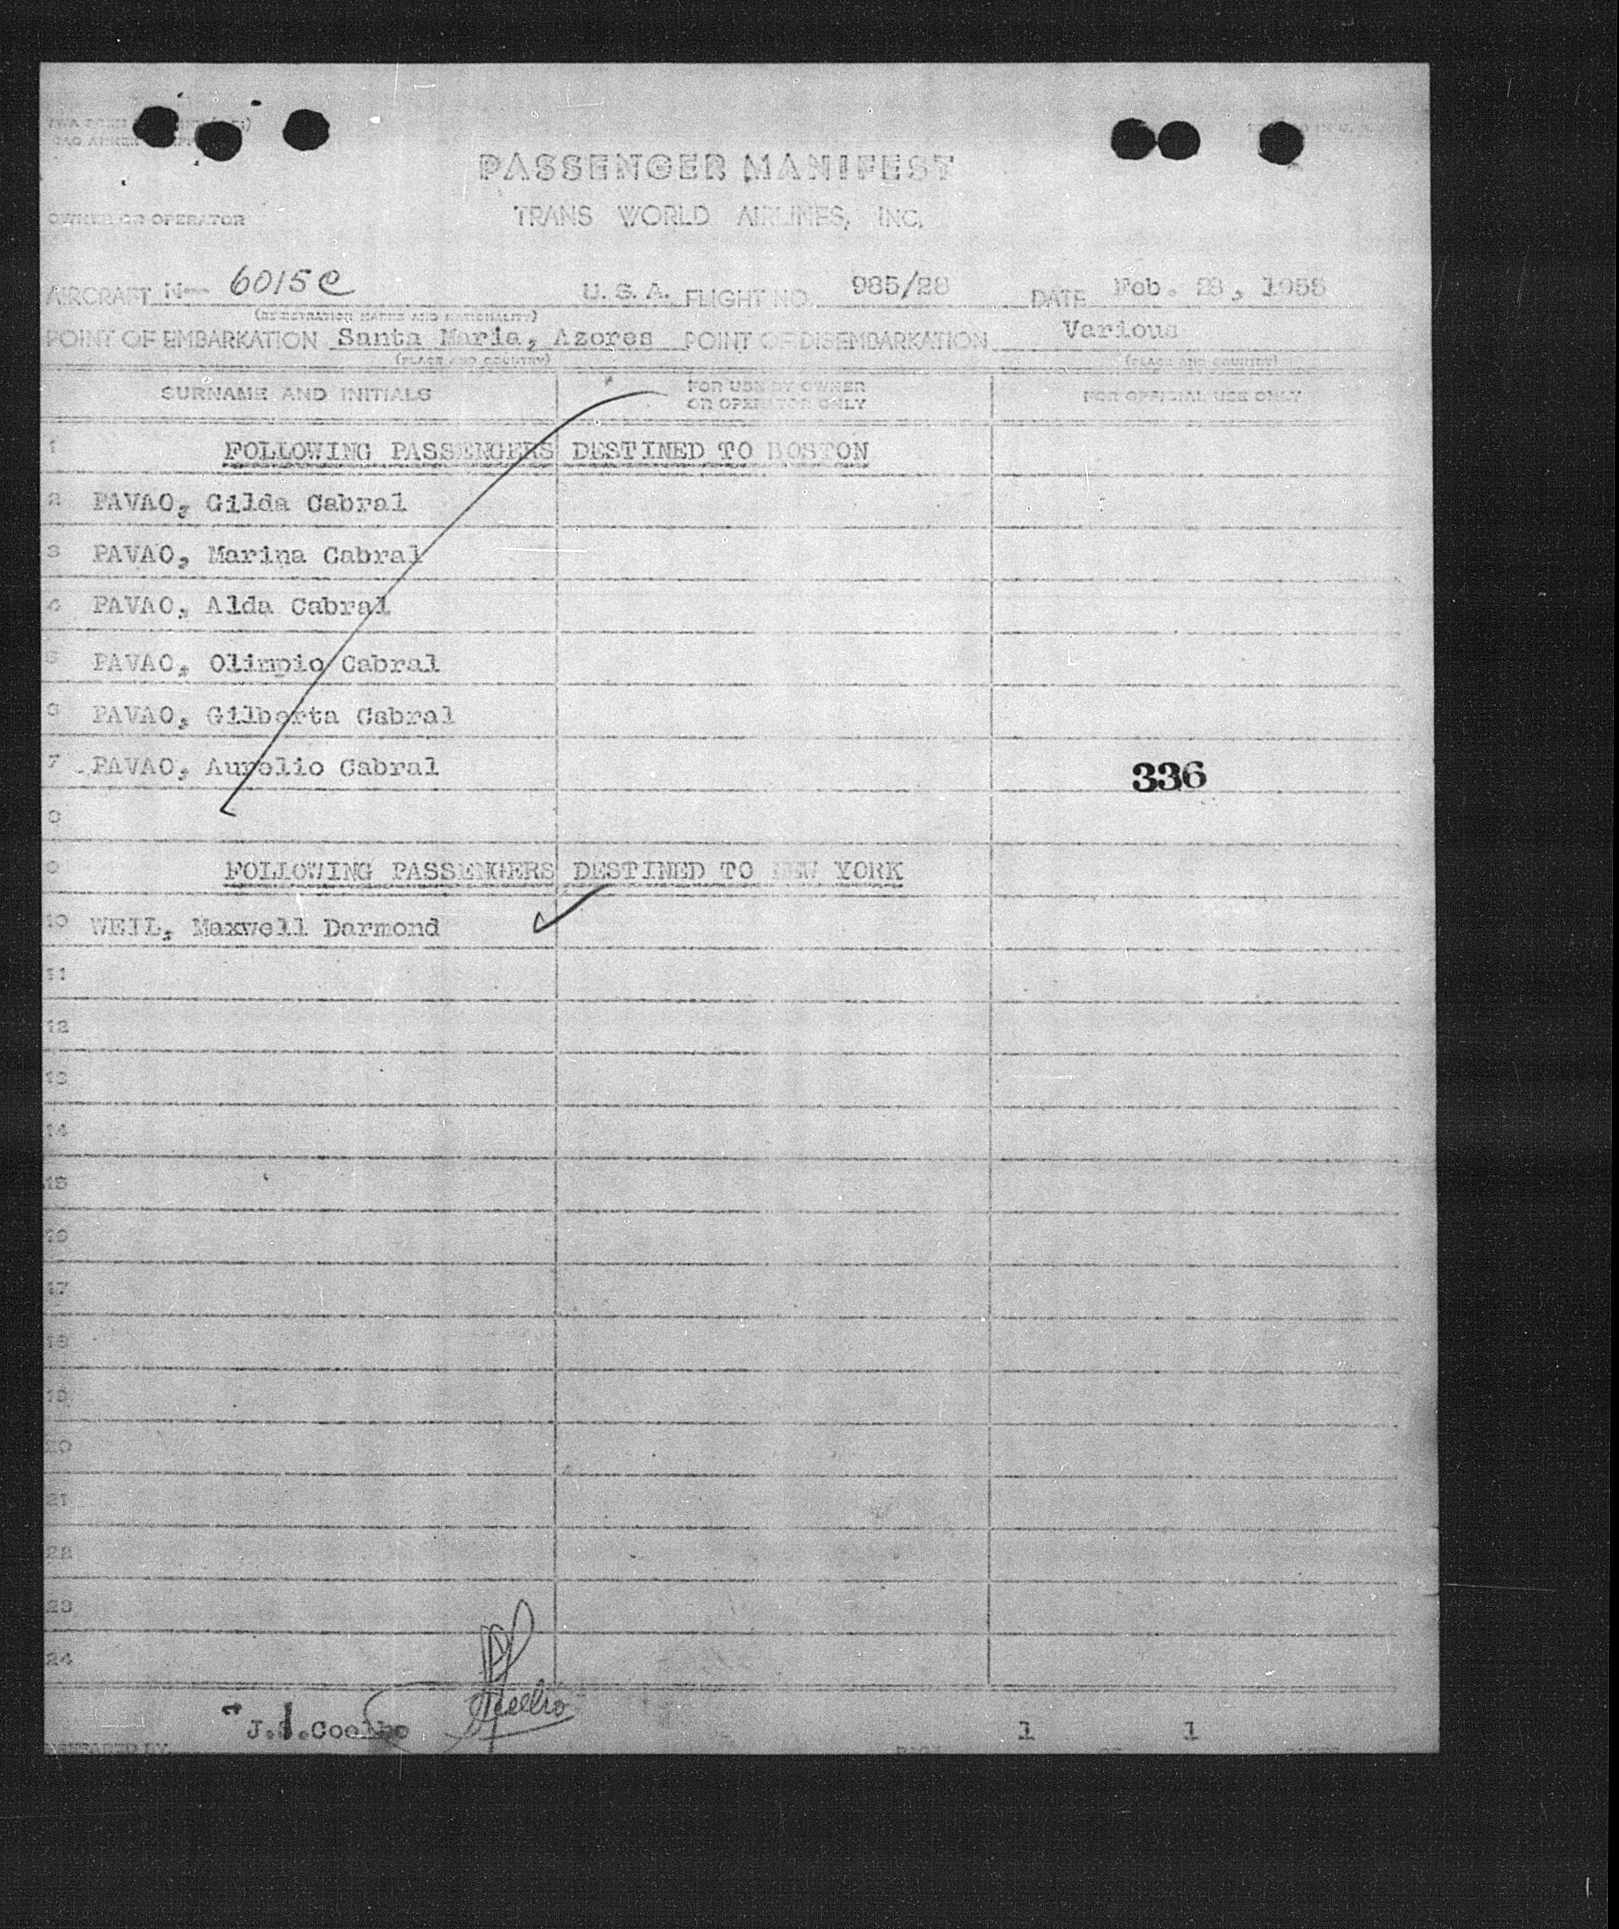 PASSENGER MANIFEST
OWNER OR OPERATOR TRANS WORLD AIRLINES, INC.
AIRCRAFT N-- 6015C U. S. A. FLIGHT NO. 985/28 DATE Feb. 28, 1955
(REGISTRATION MARKS AND NATIONALITY)
POINT OF EMBARKATION Santa Maria, Azores POINT OF DISEMBARKATION Various
(PLACE AND COUNTRY) (PLACE AND COUNTRY)
SURNAME AND INITIALS FOR USE BY OWNER OR OPERATOR ONLY FOR OFFICIAL USE ONLY
1 FOLLOWING PASSENGERS DESTINED TO BOSTON
2 PAVAO, Gilda Cabral
3 PAVAO, Marina Cabral
4 PAVAO, Alda Cabral
5 PAVAO, Olimpio Cabral
6 PAVAO, Gilberta Cabral
7 PAVAO, Aurelio Cabral 336
8
9 FOLLOWING PASSENGERS DESTINED TO NEW YORK
10 WEIL, Maxwell Darmond
11
12
13
14
15
16
17
18
19
20
21
22
23
24
Coelho
J. .Coelho 1 1
PREPARED BY